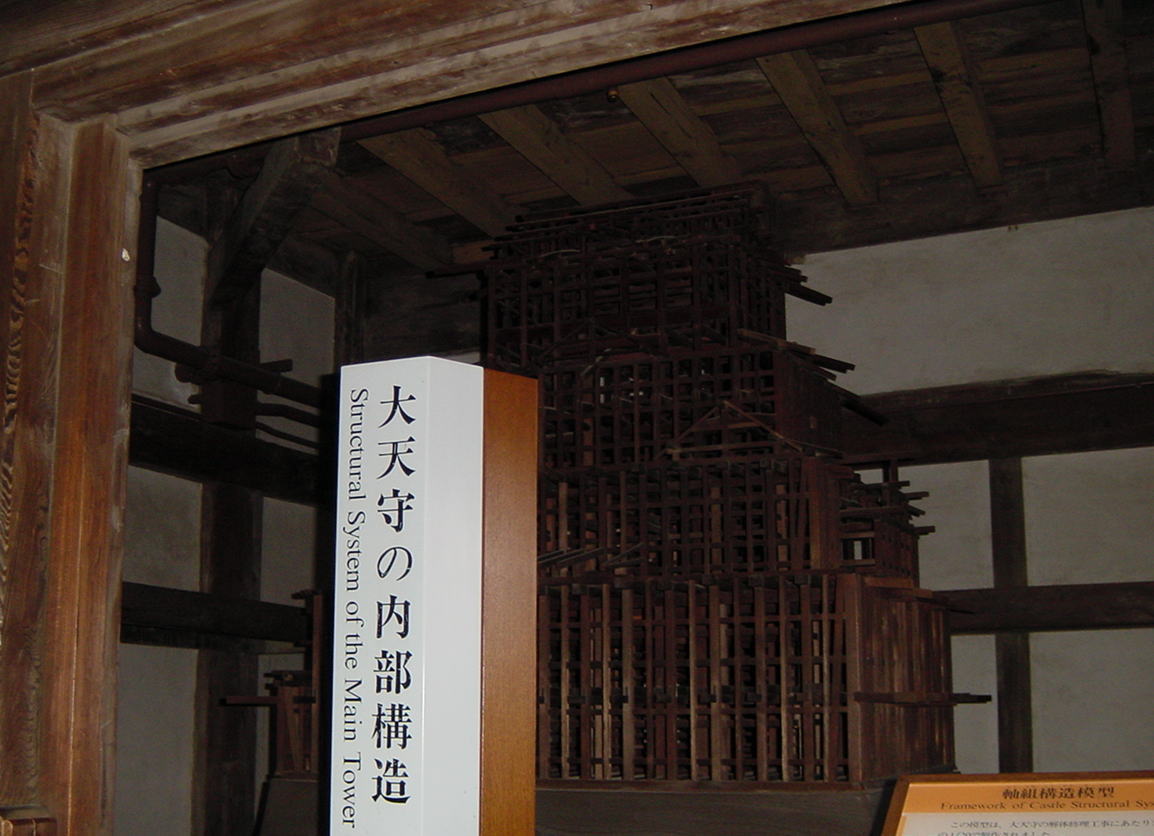 大天守の内部構造
Structural System of the Main Tower
軸組構造模型
Framework of Castle Structural
この模型は、大天守の解体修理工事にあたり